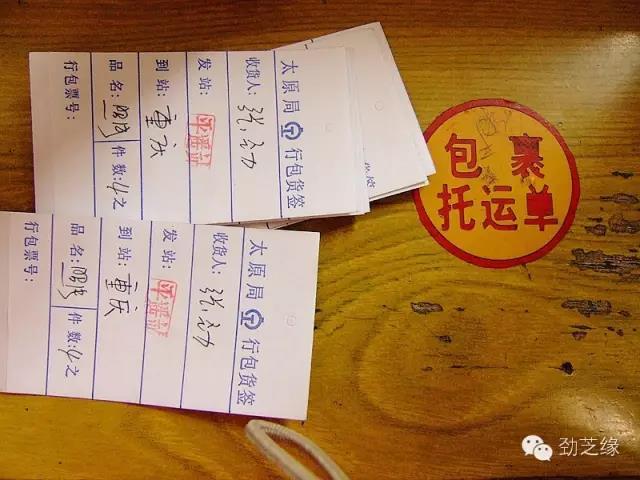 太原局 行包货签
收货人：张劲
发站：平遥站
到站：重庆
品名： 件数：4之
行包票号：
太原局 行包货签
收货人：张劲
发站：平遥站
到站：重庆
品名： 件数：4之
行包票号：
包裹
托运单
劲芝缘